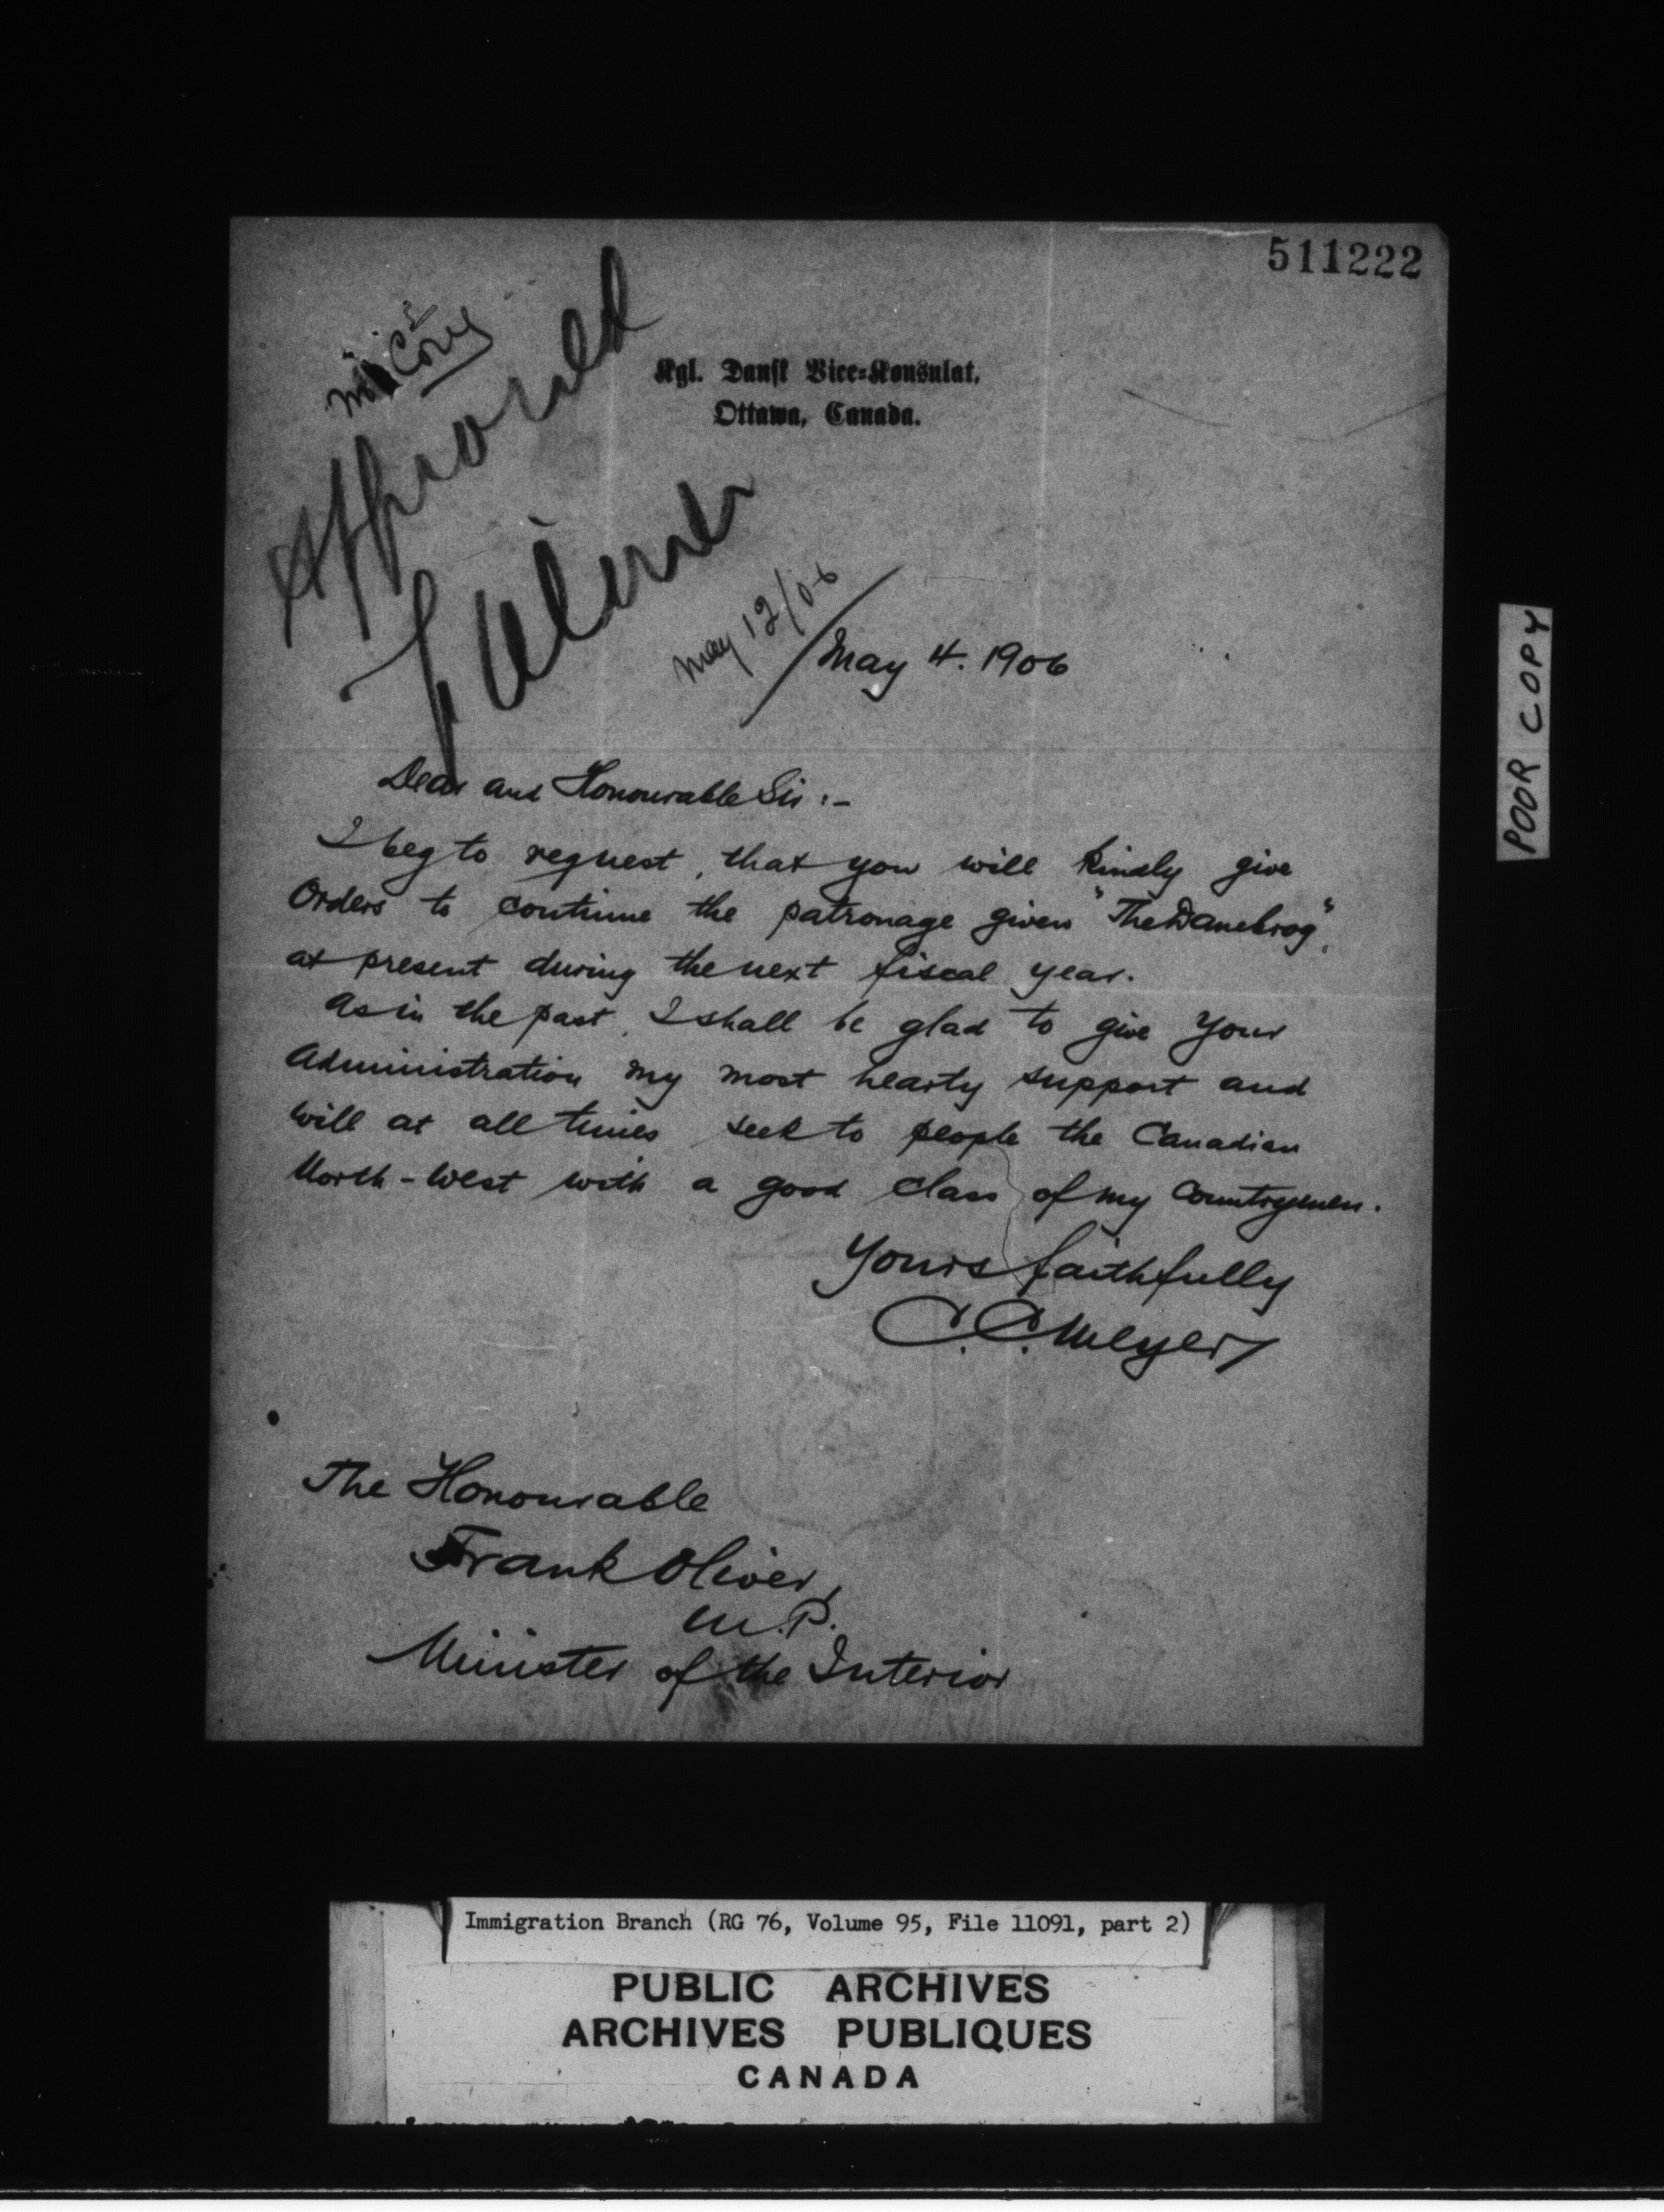 511222
Mr Cory
Approved
F Oliver
Kgl. Dansk Vice-Konsulat,
Ottawa, Canada.
May 12/06
May 4. 1906
Dear and Honourable Sir :-
I beg to request, that you will kindly give
Orders to continue the patronage given "The Danebrog",
at present during the next fiscal year.
As in the past, I shall be glad to give Your
Administration my most hearty support and
will at all times seek to people the Canadian
North-West with a good class of my Countrymen.
Yours faithfully
C. C. Meyer
The Honourable
Frank Oliver,
M.P.
Minister of the Interior
POOR COPY
Immigration Branch (RG 76, Volume 95, File 11091, part 2)
PUBLIC ARCHIVES
ARCHIVES PUBLIQUES
CANADA